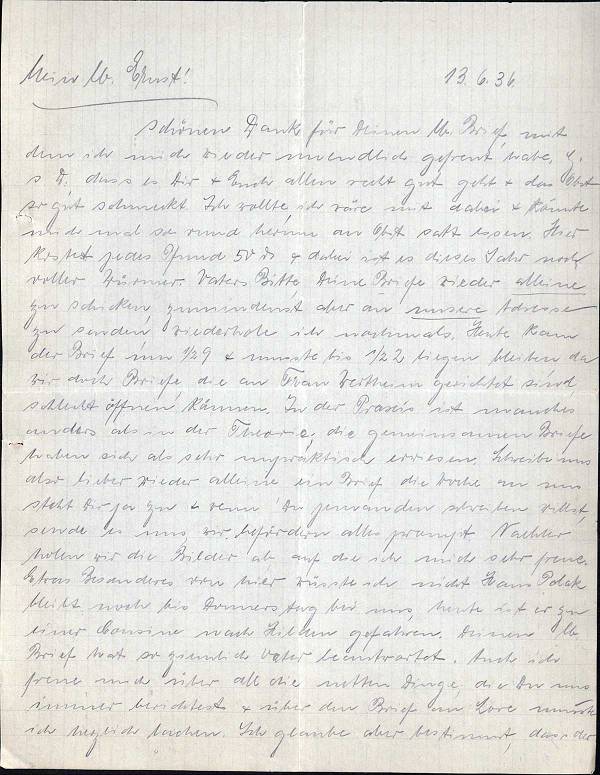 Mein lb. Ernst! 13.6.36.
Schönen Dank für Deinen lb. Brief, mit
dem ich mich wieder unendlich gefreut habe, G.
s. D. dass es Dir + Euch allen recht gut geht + das Obst
so gut schmeckt. Ich wollte, ich wäre mit dabei + könnte
mich mal so rund herum an Obst satt essen. Hier
kostet jedes Pfund 50 + dabei ist es dieses Jahr noch
voller Würmer. Vaters Bitte, Deine Briefe wieder alleine
zu schicken, zumindenst aber an unsere Adresse
zu senden, wiederhole ich nochmals. Heute kam
der Brief um 1/29 + musste bis 1/22 liegen bleiben, da
wir doch Briefe, die an Frau Wertheim gerichtet sind,
schlecht öffnen können. In der Praxis ist manches
anders als in der Theorie, die gemeinsamen Briefe
haben sich als sehr unpraktisch erwiesen. Schreibe uns
also lieber wieder alleine, ein Brief die Woche an uns
steht Dir ja zu + wenn Du jemanden schreiben willst,
sende es uns, wir befördern alles prompt. Nachher
holen wir die Bilder ab auf die ich mich sehr freue.
Etwas Besonderes von hier wüsste ich nicht. Hans Polak
bleibt noch bis Donnerstag bei uns, heute ist er zu
einer Cousine nach Hilden gefahren. Deinen lb.
Brief hat so ziemlich Vater beantwortet. Auch ich
freue mich über all die netten Dinge, die Du uns
immer berichtest + über den Brief an Lore musste
ich herzlich lachen. Ich glaube aber bestimmt, dass der